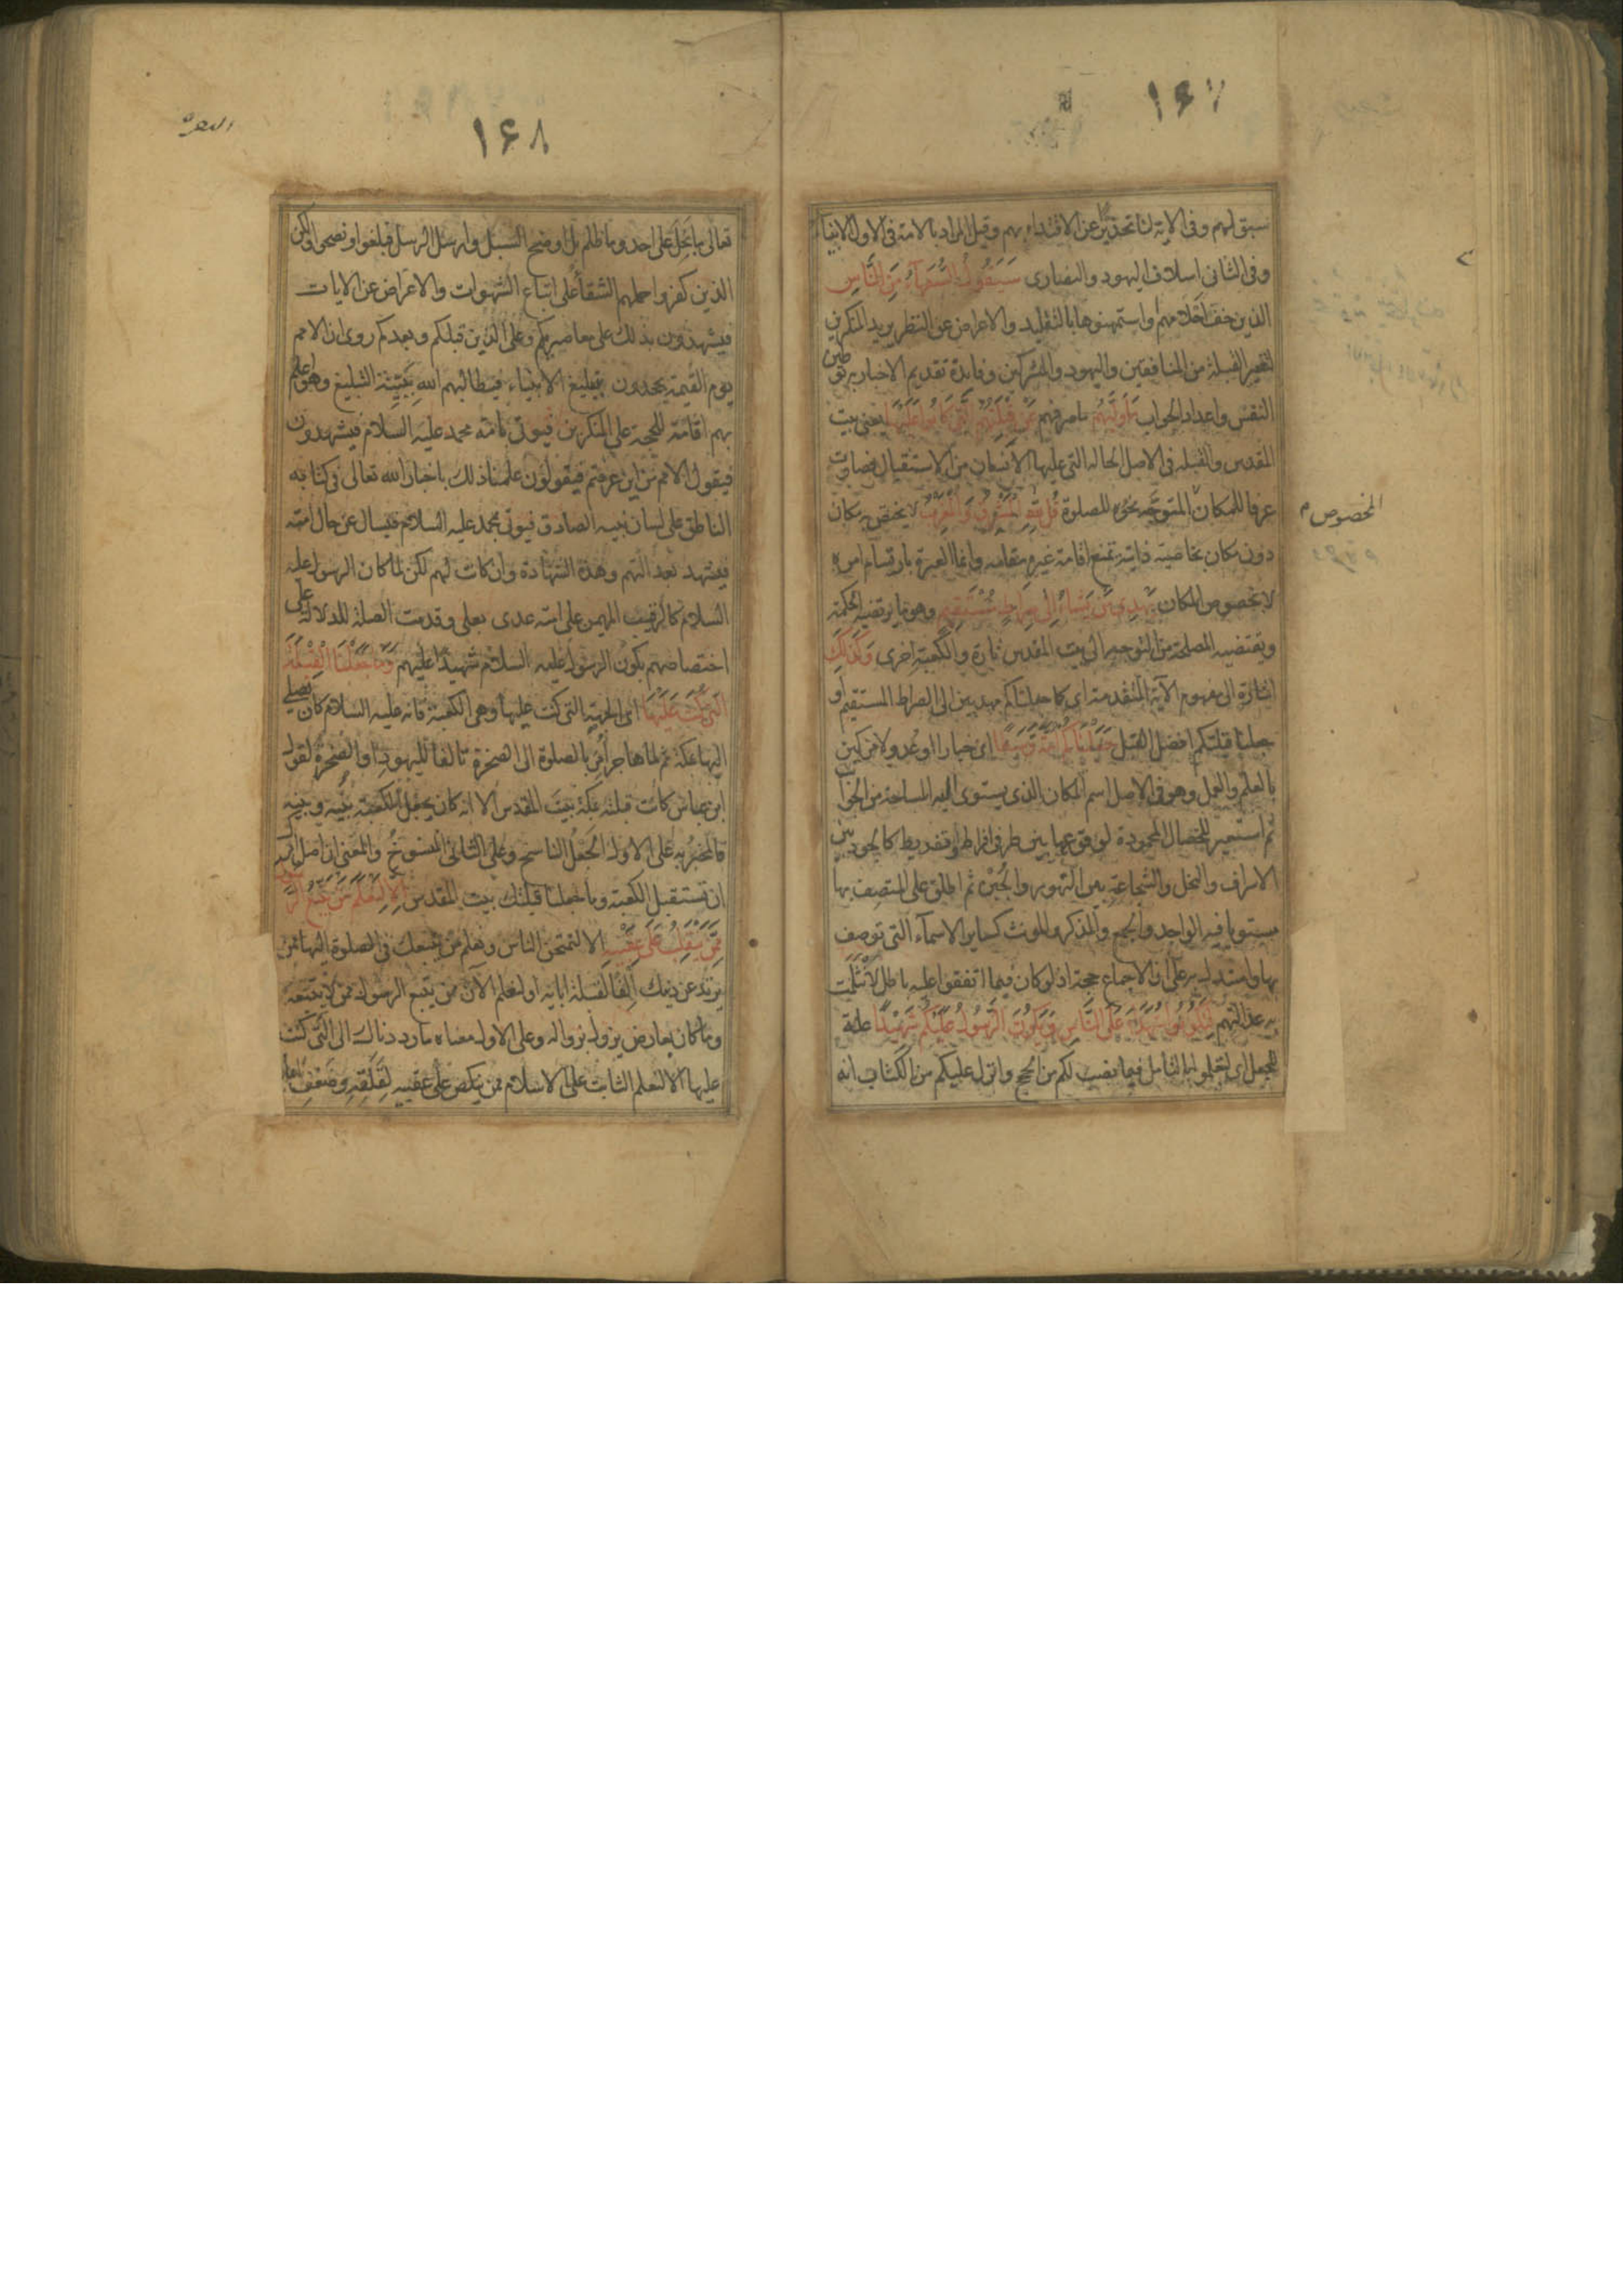 ١٦٧
سبق لهم وفى الآية لنا تحذيرا عن الاقتداء بهم وقيل المراد بالامة فى الاول الانبياء
وفى الثانى اسلاف اليهود والنصارى سَيَقُولُ السُّفَهَآءُ مِنَ النَّاسِ
الذين خف احلامهم واستمهنوها بالتقليد والاعراض عن النظر يريد المنكرين
لتغيير القبلة من المنافقين واليهود والمشركين وفايدة تقديم الاخبار به توطين
النفس واعداد الجواب مَا وَلّٰيهُمْ ما صرفهم عَنْ قِبْلَتِهِمُ الَّتِى كَانُوا عَلَيْهَا يعنى بيت
المقدس والقبلة فى الاصل الحالة التى عليها الانسان من الاستقبال فصارت
عرفا للمكان المتوجه نحوه للصلوة قُلْ لِلّٰهِ الْمَشْرِقُ وَالْمَغْرِبُ لا يختص به مكان
دون مكان بخاصية ذاتية تمنع اقامة غيره مقامه وانما العبرة بارتسام امره
لا بخصوص المكان يَهْدِى مَنْ يَشَاءُ اِلٰى صِرَاطٍ مُسْتَقِيمٍ وهو ما يرتضيه الحكمة
ويقتضيه المصلحة من التوجه الى بيت المقدس تارة والكعبة اخرى وَكَذٰلِكَ
اشارة الى مفهوم الآية المتقدمة اى كما جعلناكم مهديين الى الصراط المستقيم او
جعلنا قبلتكم افضل القبل جَعَلْنَاكُمْ اُمَّةً وَسَطًا اى خيارا او عدولا مزكين
بالعلم والعمل وهو فى الاصل اسم المكان الذى يستوى اليه المساحة من الجوانب
ثم استعير للخصال المحمودة لوقوعها بين طرفى افراط وتفريط كالجود بين
الاسراف والبخل والشجاعة بين التهور والجبن ثم اطلق على المتصف بها
مستويا فيه الواحد والجمع والمذكر والمونث كساير الاسماء التى توصف
بها واستدل به على ان الاجماع حجة اذ لو كان فيما اتفقوا عليه باطل لانثلمت
به عدالتهم لِتَكُونُوا شُهَدَاءَ عَلَى النَّاسِ وَيَكُونَ الرَّسُولُ عَلَيْكُمْ شَهِيدًا علة
للجعل اى لتعلموا بالتامل فيما نصب لكم من الحجج وانزل عليكم من الكتاب انه
المخصوص
١٦٨
البقرة
تعالى ما بخل على احد وما ظلم بل اوضح السبل وارسل الرسل فبلغوا ونصحوا ولكن
الذين كفروا حملهم الشقاء على اتباع الشهوات والاعراض عن الايات
فيشهدون بذلك على معاصريكم وعلى الذين قبلكم وبعدكم روى ان الامم
يوم القيمة يجحدون بتبليغ الانبياء فيطالبهم الله ببينة التبليغ وهو اعلم
بهم اقامة للحجة على المنكرين فيوتى بامة محمد عليه السلام فيشهدون
فيقول الامم من اين عرفتم فيقولون علمنا ذلك باخبار الله تعالى فى كتابه
الناطق على لسان نبيه الصادق فيوتى بمحمد عليه السلام فيسال عن حال امته
فيشهد بعدالتهم وهذه الشهادة وان كانت لهم لكن لما كان الرسول عليه
السلام كالرقيب المهيمن على امته عدى بعلى وقدمت الصلة للدلالة على
اختصاصهم بكون الرسول عليه السلام شهيدا عليهم وَمَا جَعَلْنَا الْقِبْلَةَ
الَّتِى كُنْتَ عَلَيْهَا اى الجهة التى كنت عليها وهى الكعبة فانه عليه السلام كان يصلى
اليها بمكة ثم لما هاجر امر بالصلوة الى الصخرة تالفا لليهود او الصخرة لقول
ابن عباس كانت قبلته بمكة بيت المقدس الا انه كان يجعل الكعبة بينه وبينه
فالمخبر به على الاول الجعل الناسخ وعلى الثانى المنسوخ والمعنى ان اصل امرك
ان تستقبل الكعبة وما جعلنا قبلتك بيت المقدس اِلَّا لِنَعْلَمَ مَنْ يَتَّبِعُ الرَّسُولَ
مِمَّنْ يَنْقَلِبُ عَلٰى عَقِبَيْهِ الا لنمتحن الناس ونعلم من يتبعك فى الصلوة اليها ممن
يرتد عن دينك الفا لقبلة ابايه او لنعلم الآن من يتبع الرسول ممن لا يتبعه
وما كان لعارض يزول بزواله وعلى الاول معناه ما رددناك الى التى كنت
عليها الا لنعلم الثابت على الاسلام ممن ينكص على عقبيه لقلقه وضعف ايمانه